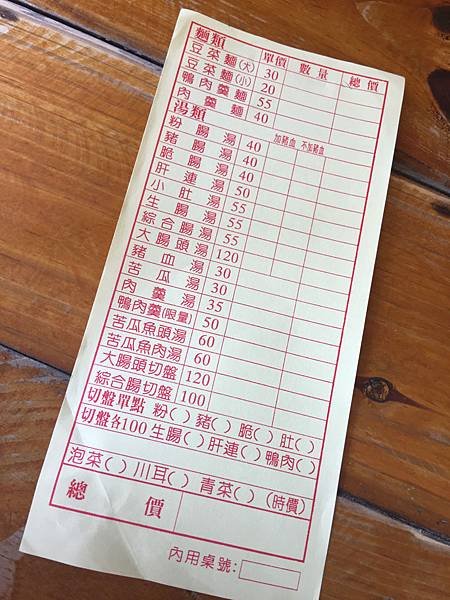 麵類 單價 數量 總價
豆菜麵(大) 30
豆菜麵(小) 20
鴨肉羹麵 55
肉羹麵 40
湯類 加豬血 不加豬血
粉腸湯 40
豬腸湯 40
脆腸湯 40
肝連湯 50
小肚湯 55
生腸湯 55
綜合腸湯 55
大腸頭湯 120
豬血湯 30
苦瓜湯 30
肉羹湯 35
鴨肉羹(限量) 50
苦瓜魚頭湯 60
苦瓜魚肉湯 60
大腸頭切盤 120
綜合腸切盤 100
切盤單點 粉( ) 豬( ) 脆( ) 肚( )
切盤各100 生腸( ) 肝連( ) 鴨肉( )
泡菜( ) 川耳( ) 青菜( ) (時價)
總價
內用桌號: